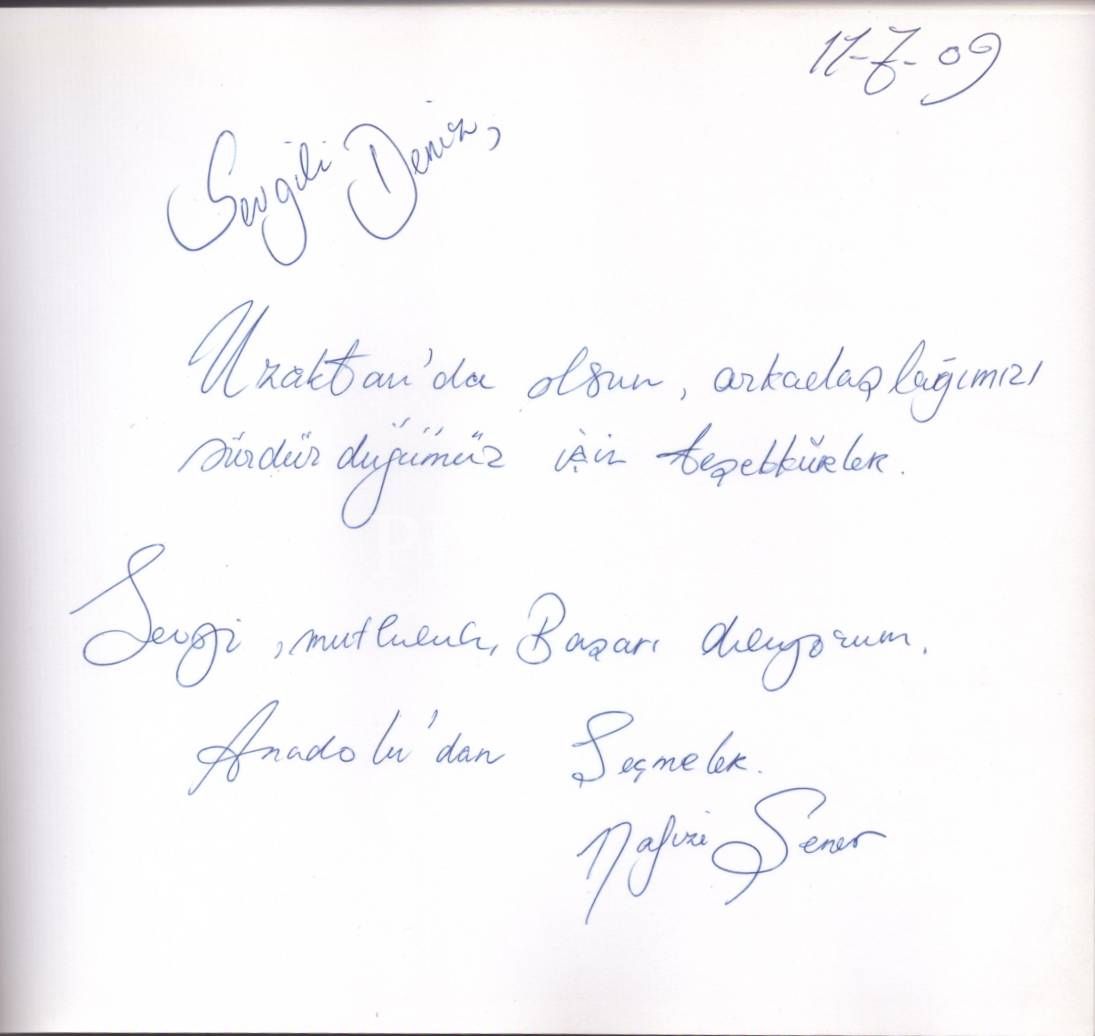 11-7-09
Sevgili Deniz,
Uzaktan'da olsun, arkadaşlığımızı
sürdürdüğümüz için teşekkürler.
Sevgi, mutluluk, Başarı diliyorum.
Anadolu'dan Seçmeler.
Şener